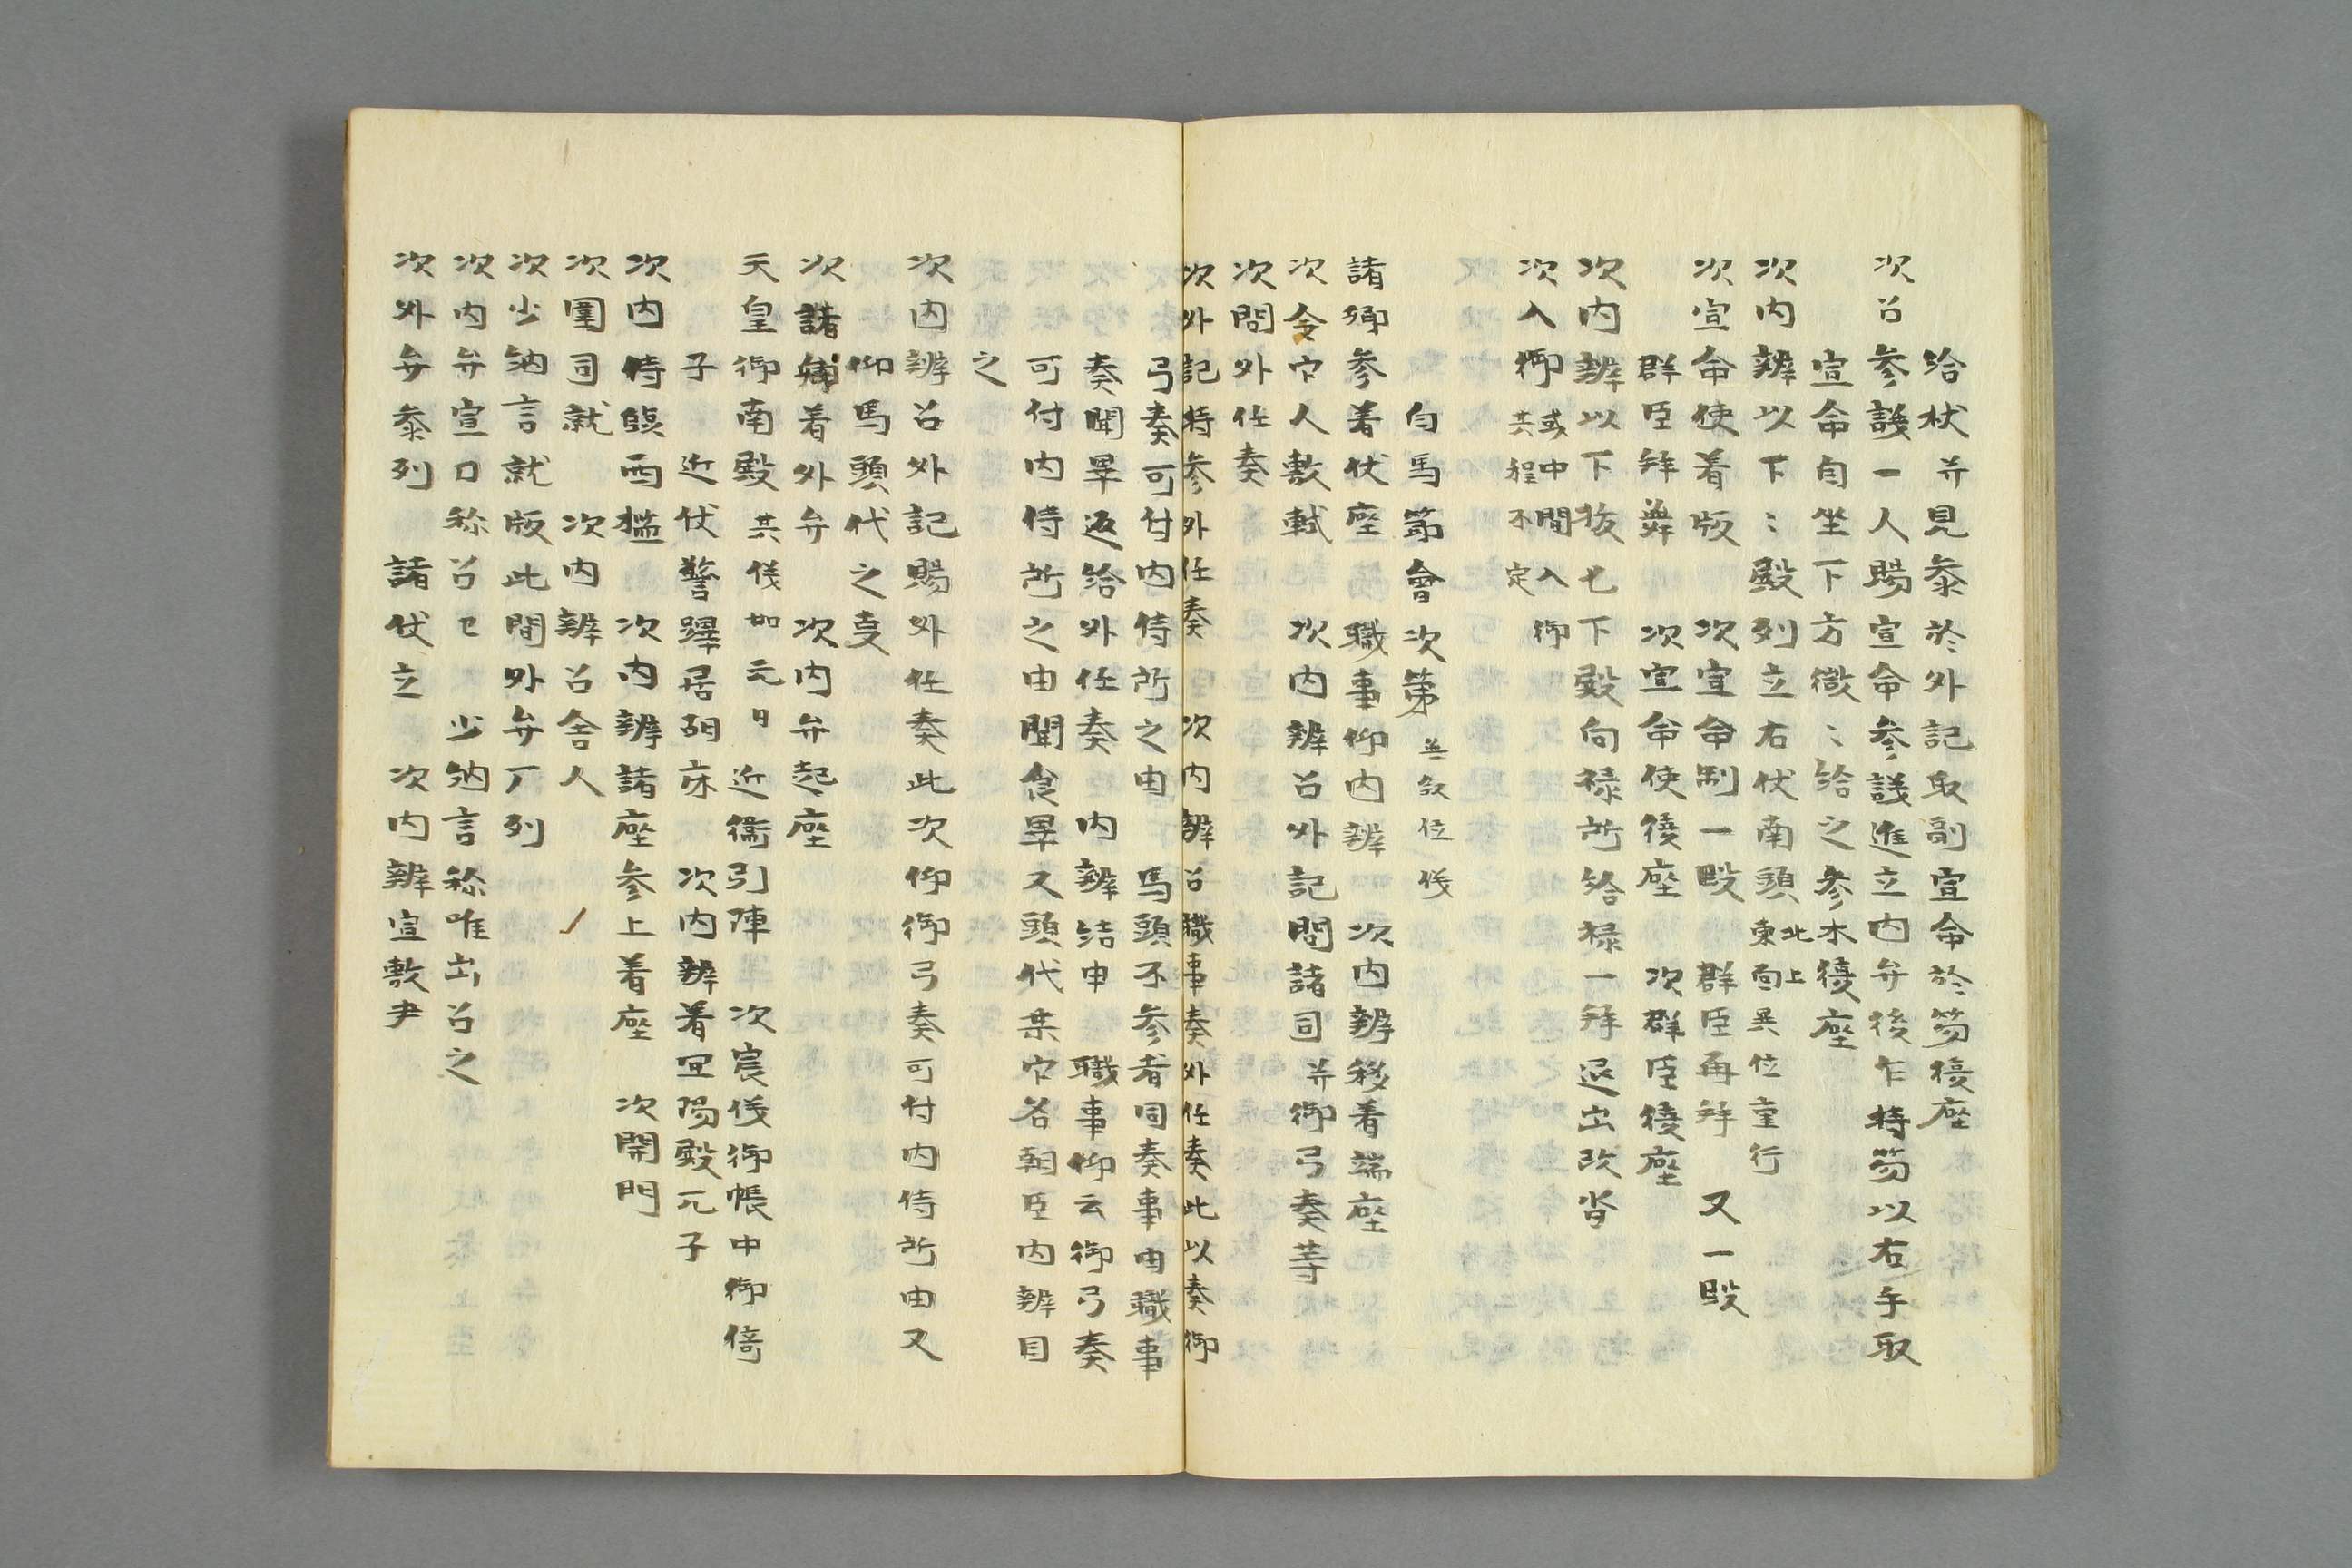 給杖并見参於外記取副宣命於笏復座
次召参議一人賜宣命参議進立内弁後乍持笏以右手取
宣命自坐下方微〻給之参木復座
次内辨以下〻殿列立右伏南頭北上東面異位重行
次宣命使着版　次宣命制一段　群臣再拜　又一段
群臣拜舞　次宣命使復座　次群臣復座
次内辨以下拔七下殿向禄所給禄一拜退出改沓
次入御或中間入御其程不定
白馬節會次第并叙位儀
諸卿参着伏座　職事仰内辨　次内辨移着端座
次令官人敷軾　次内辨召外記問諸司并御弓奏等
次問外任奏
次外記持参外任奏　次内辨召職事奏外任奏此以奏御
弓奏可付内侍所之由　馬頭不参者同奏事由職事
奏聞畢返給外任奏　内辨結申　職事仰云御弓奏
可付内侍所之由聞食畢又頭代某官名朝臣内辨目
之
次内辨召外記賜外任奏此次仰御弓奏可付内侍所由又
仰馬頭代之支
次諸卿着外弁　次内弁起座
天皇御南殿其儀如元日　近衞引陣　次宸儀御帳中御倚
子　近伏警蹕居胡床　次内辨着宜陽殿兀子
次内侍臨西檻　次内辨諸座参上着座　次開門
次闈司就　次内辨召舍人
次少納言就版此間外弁丁列
次内弁宣刀祢召セ　少納言称唯出召之
次外弁参列　諸伏立　次内辨宣敷尹